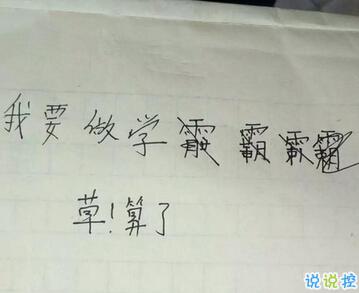 我要做学霸
草!算了
说说控